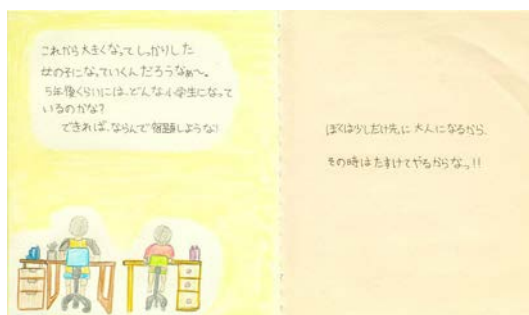 これから大きくなって しっかりした
女の子になっていくんだろうなぁ〜。
5年後くらいには、どんな小学生になって
いるのかな?
できれば、ならんで宿題しような!
ぼくは少しだけ先に大人になるから、
その時はたすけてやるからなっ!!